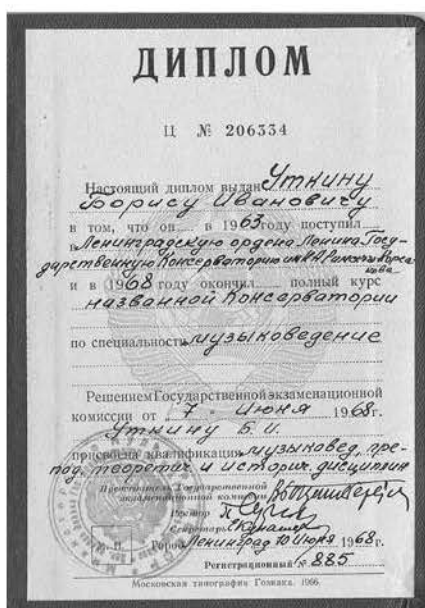 ДИПЛОМ
Ц № 206334
Настоящий диплом выдан Уткину
Борису Ивановичу
в том, что он в 1963 году поступил
в Ленинградскую ордена Ленина Госу-
дарственную Консерваторию им. Н.А. Римского-Корса-
кова
и в 1968 году окончил полный курс
названной Консерватории
по специальности музыковедение
Решением Государственной экзаменационной
комиссии от 7 июня 1968 г.
Уткину Б. И.
присвоена квалификация музыковед, пре-
под. теоретич. и историч. дисциплин
Председатель Государственной
экзаменационной комиссии
Ректор
Секретарь
Город Ленинград 10 июня 1968 г.
Регистрационный № 885
Московская типография Гознака. 1966.